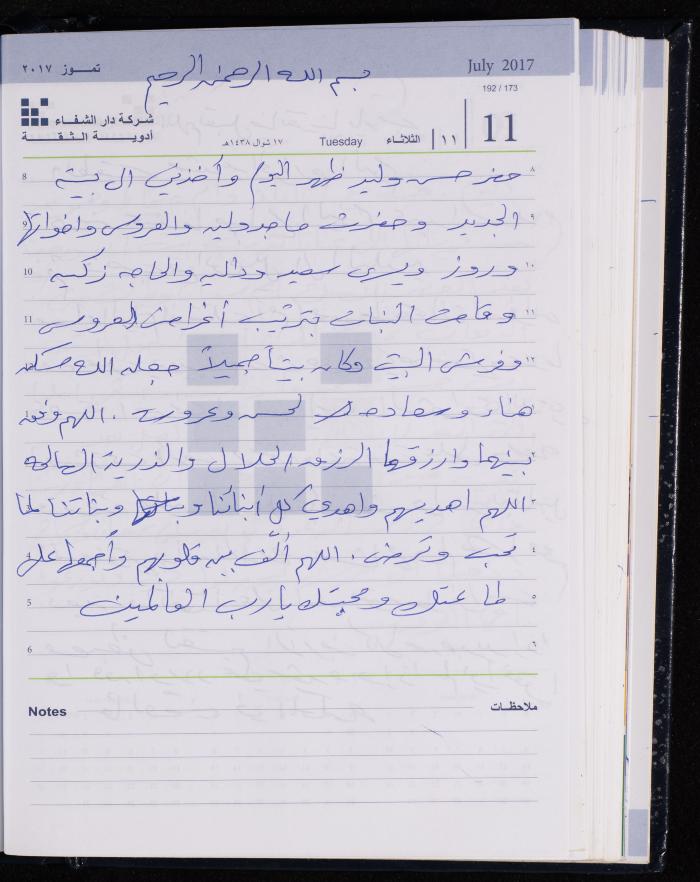 تمـــوز ٢٠١٧
July 2017
بسم الله الرحمن الرحيم
192 / 173
شركة دار الشفـاء
أدويـــة الـثـقـــة
11
١١
الثلاثـاء
Tuesday
١٧ شوال ١٤٣٨هـ
٨ حضر حسن وليد ظهر اليوم وأخذني الى بيته 8
٩ الجديد وحضرت ماجدوليه والعروس واخواتها 9
١٠ وروز ويسرى سعيد وداليه والحاجه زكيه 10
١١ وقامت البنات بترتيب أغراض العروس 11
١٢ وفرش البيت وكان بيتاً جميلاً جعله الله مسكن
هناء وسعاده لحسن وعروسه . اللهم وفق
٢ بينهما وارزقهما الرزق الحلال والذرية الصالحه
٣ اللهم اهديهم واهدي كل أبنائنا وبناتنا لما
٤ تحب وترضى . اللهم ألّف بين قلوبهم وأجمعها على
٥ طاعتك ومحبتك يا رب العالمين 5
٦ 6
Notes
ملاحظـات